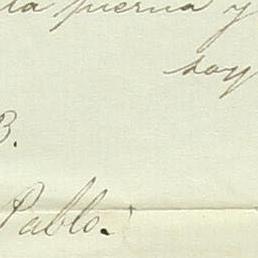 la pierna y
soy
B.
Pablo.